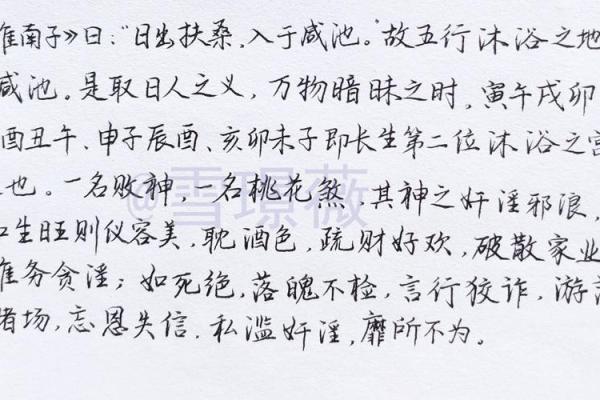 淮南子》曰："日出扶桑，入于咸池。"故五行沐浴之地
咸池。是取日人之义，万物暗昧之时，寅午戌卯
酉丑午、申子辰酉、亥卯未子即长生第二位沐浴之宫
也。一名败神，一名桃花煞，其神之奸淫邪浪，
生旺则仪容美，耽酒色，疏财好欢，破散家业
惟务贪淫；如死绝，落魄不检，言行狡诈，游
赌场，忘恩失信，私滥奸淫，靡所不为。
@雪璟薇